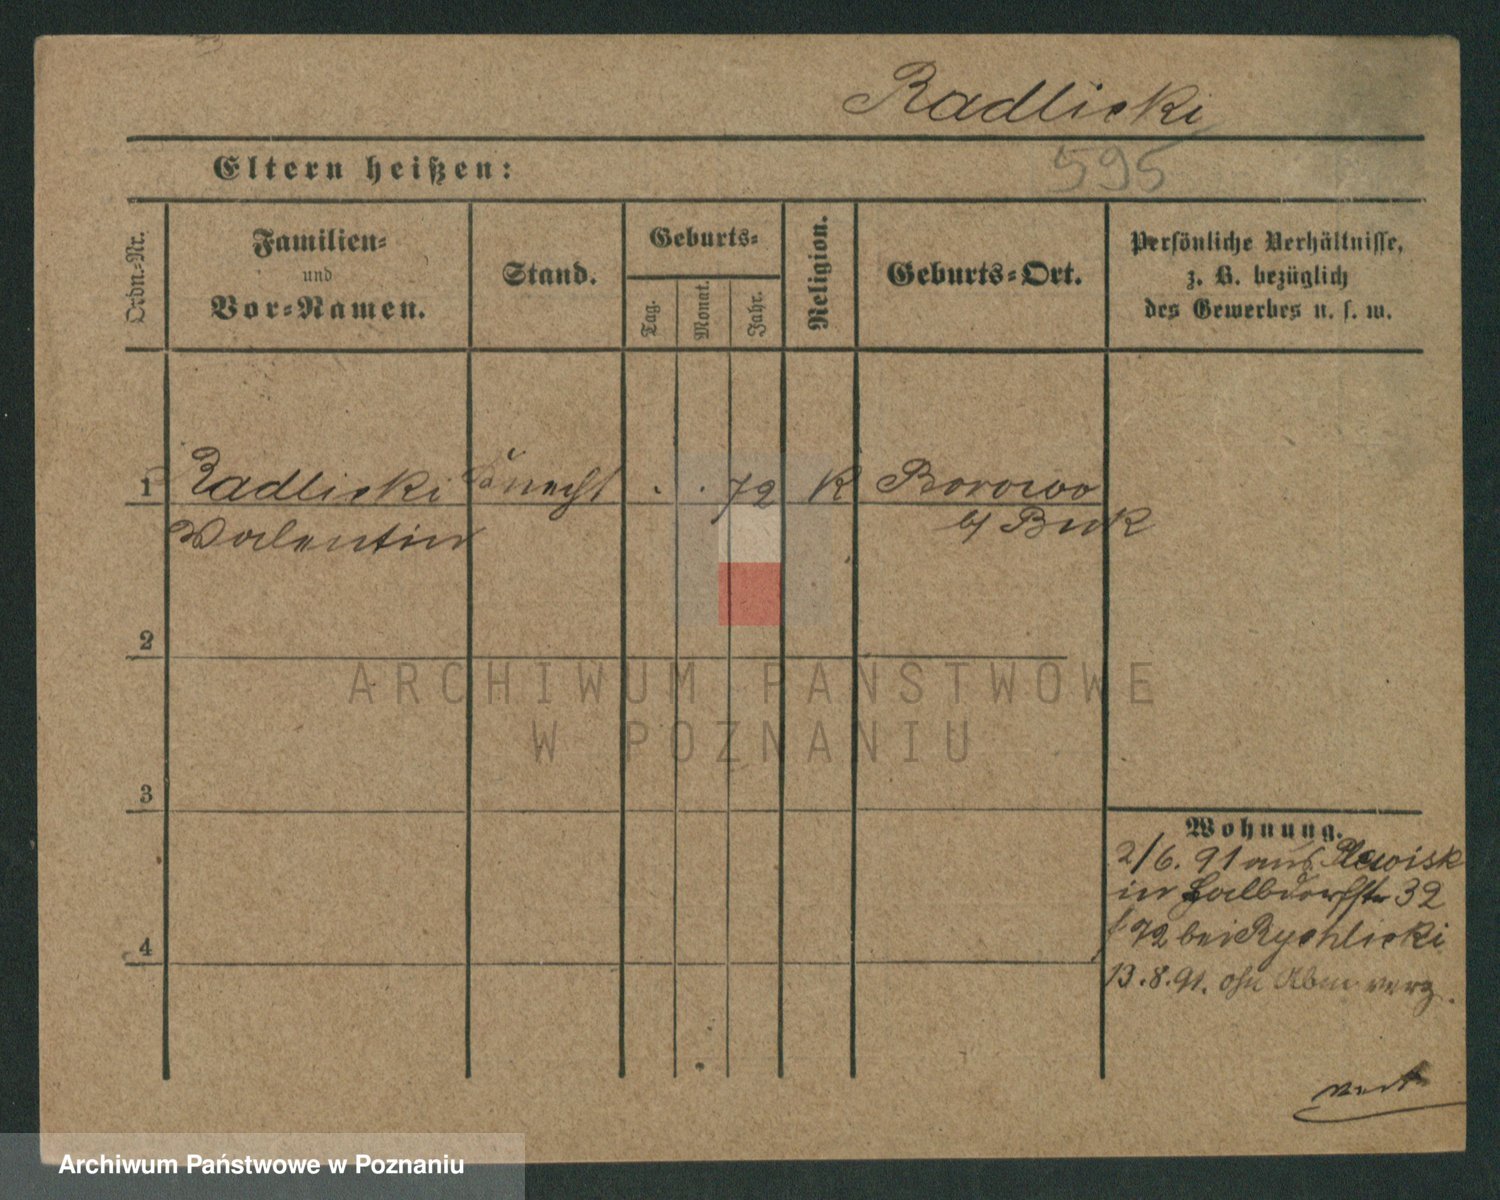 Radlicki
595
Eltern heißen:
Ordn.-Nr.
Familien-
und
Vor-Namen.
Stand.
Geburts-
Tag.
Monat.
Jahr.
Religion.
Geburts-Ort.
Persönliche Verhältnisse,
z. B. bezüglich
des Gewerbes u. s. w.
1 Radlicki Knecht . . 72 K Borowo
Valentin b/ Buk
2
3
4
Wohnung.
2/6. 91 aus Plewisk
in Halbdorfstr 32
72 bei Rychlicki
13.8.91. ohn Abm verz.
ARCHIWUM PAŃSTWOWE
W POZNANIU
Archiwum Państwowe w Poznaniu